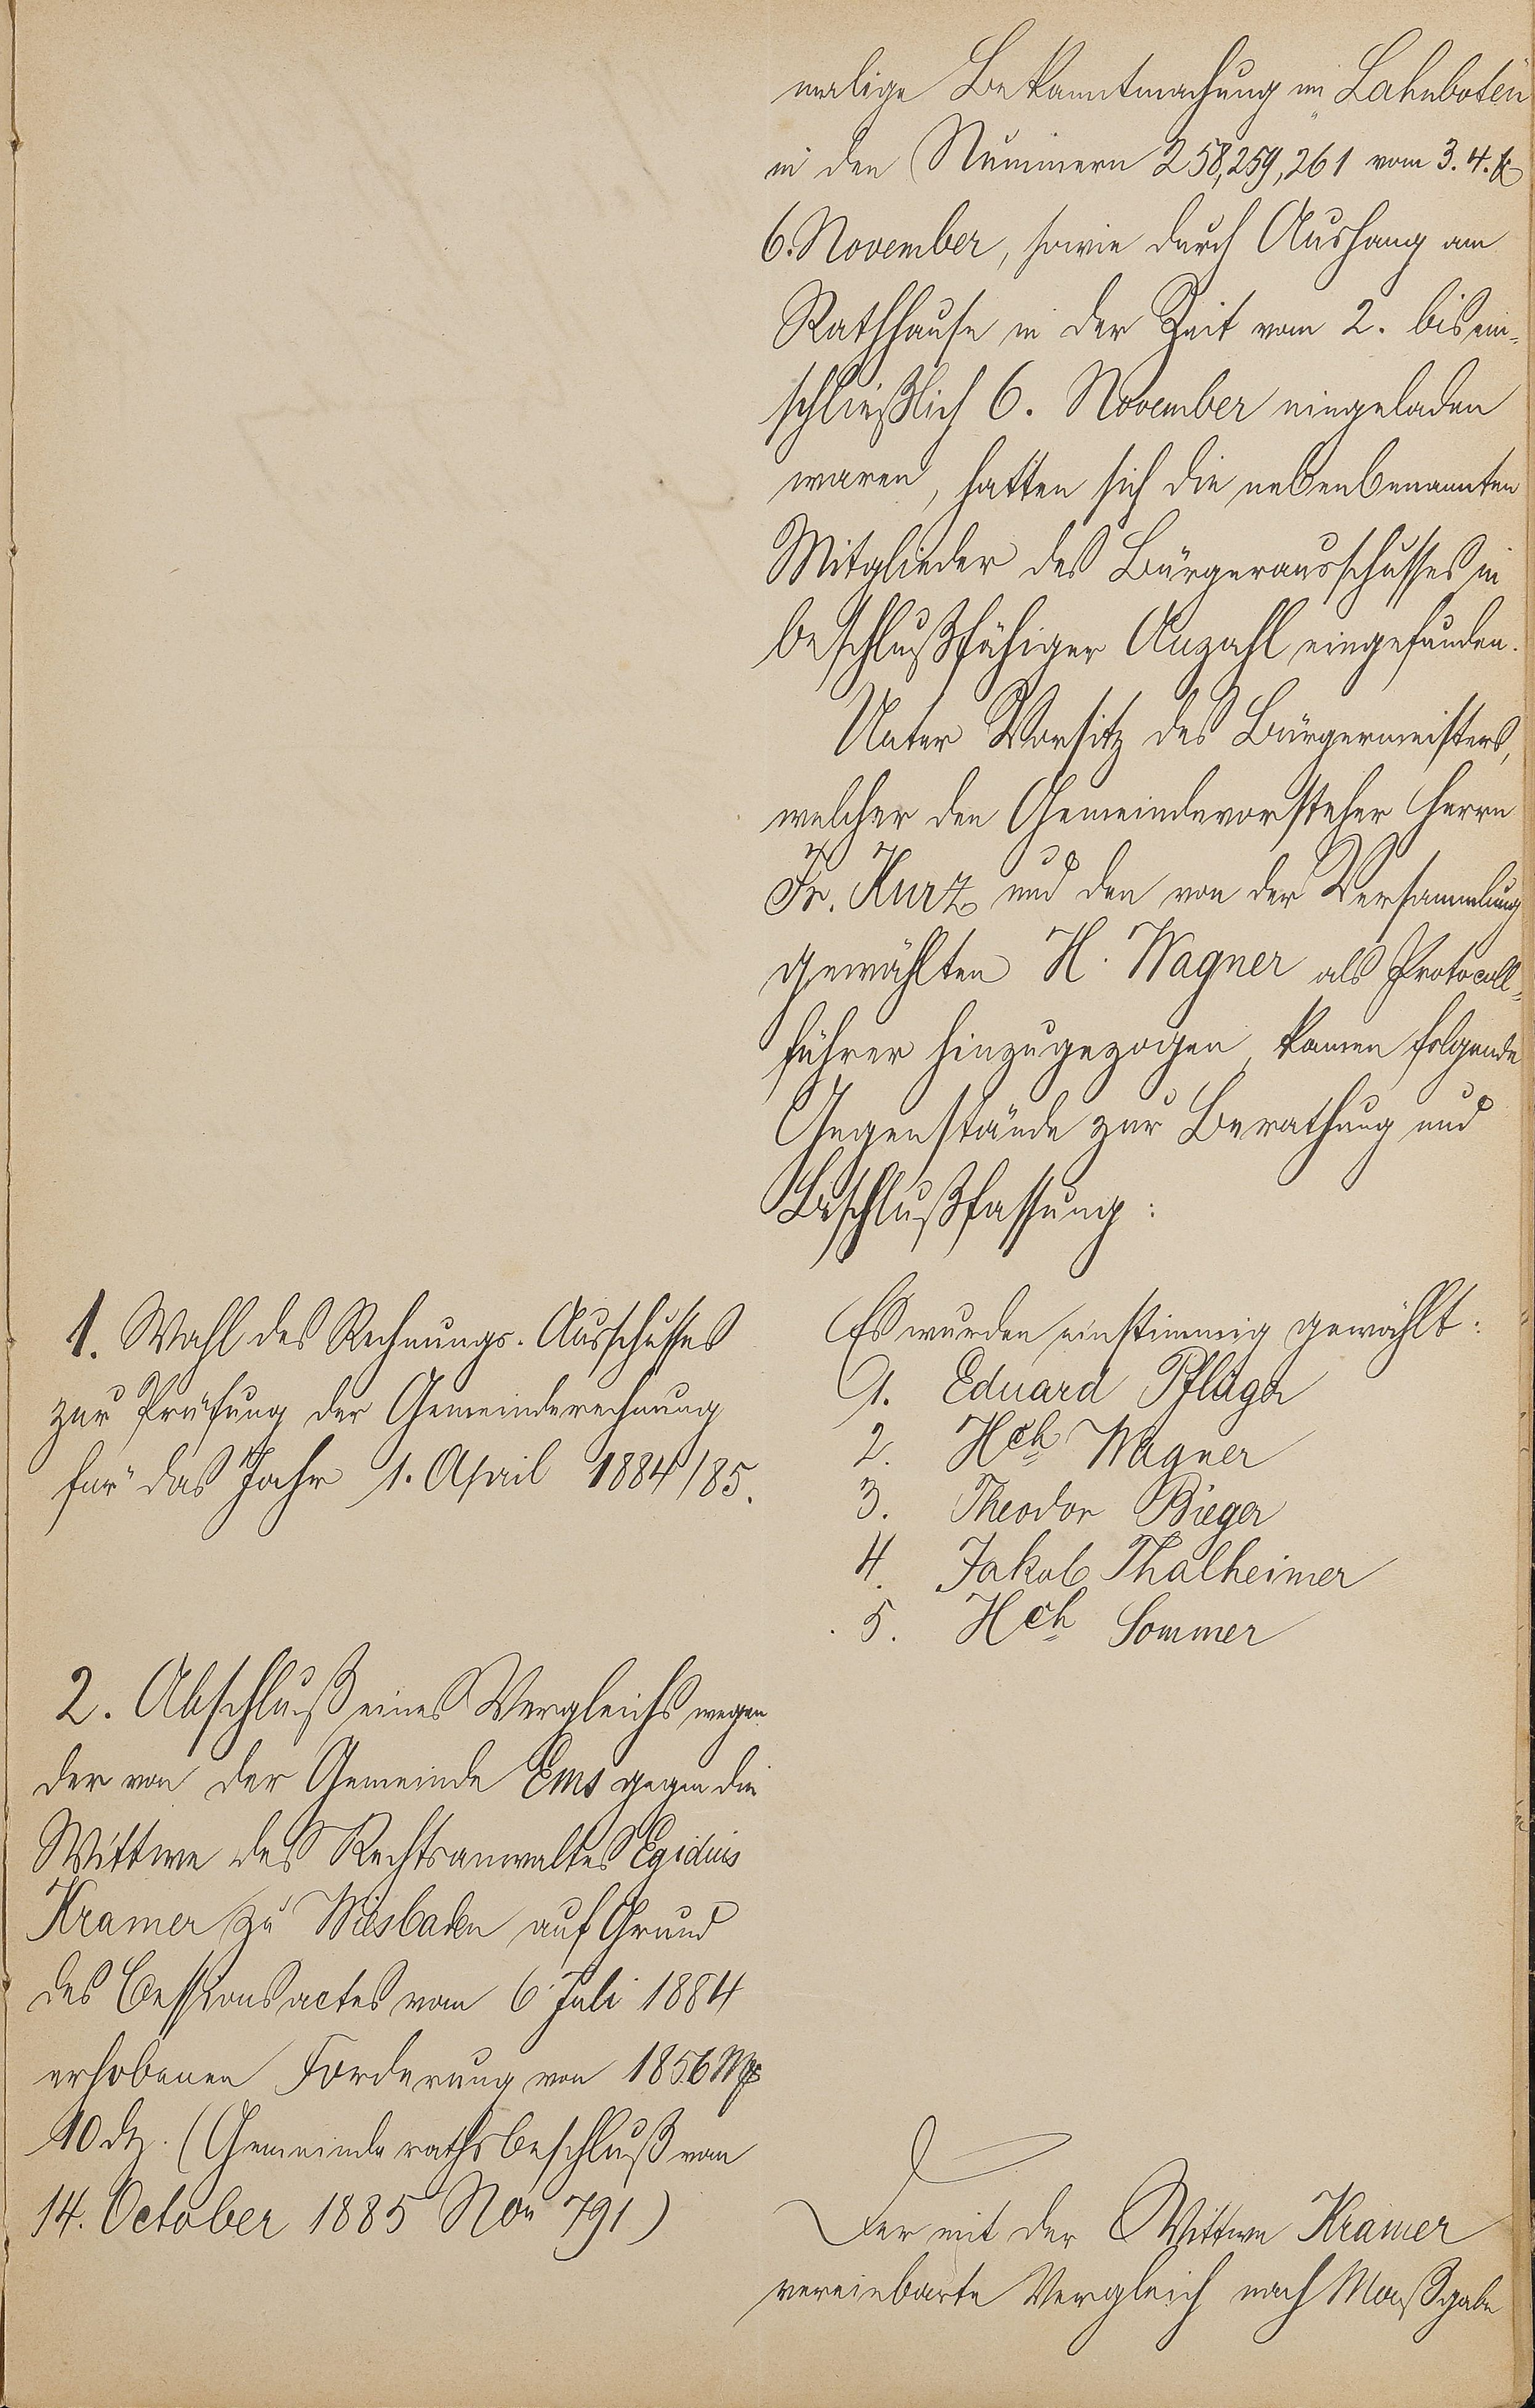 malige Bekanntmachung im „Lahnboten"
in den Nummern 258, 259, 261 vom 3. 4. &
6. November, sowie durch Aushang am
Rathhause in der Zeit vom 2. bis ein-
schließlich 6. November eingeladen
waren, hatten sich die nebenbenannten
Mitglieder des Bürgerausschusses in
beschlußfähiger Anzahl eingefunden.
Unter Vorsitz des Bürgermeisters,
welcher den Gemeindevorsteher Herrn
Fr. Kurz und den von der Versammlung
gewählten H. Wagner als Protocoll-
führer hinzugezogen, kamen folgende
Gegenstände zur Berathung und
Beschlußfassung:
1. Wahl des Rechnungs-Ausschusses
zur Prüfung der Gemeinderechnung
für das Jahr 1. April 1884/85.
Es wurden einstimmig gewählt:
1. Eduard Pflüger
2. Hch Wagner
3. Theodor Bieger
4. Jakob Thalheimer
5. Hch Sommer
2. Abschluß eines Vergleichs wegen
der von der Gemeinde Ems gegen die
Wittwe des Rechtsanwaltes Egidius
Kramer zu Wiesbaden auf Grund
des Cessionsactes vom 6. Juli 1884
erhobenen Forderung von 1856 Mk
10 d. (Gemeinderathsbeschluß vom
14. October 1885 No 791)
Der mit der Wittwe Kramer
vereinbarte Vergleich nach Maßgabe